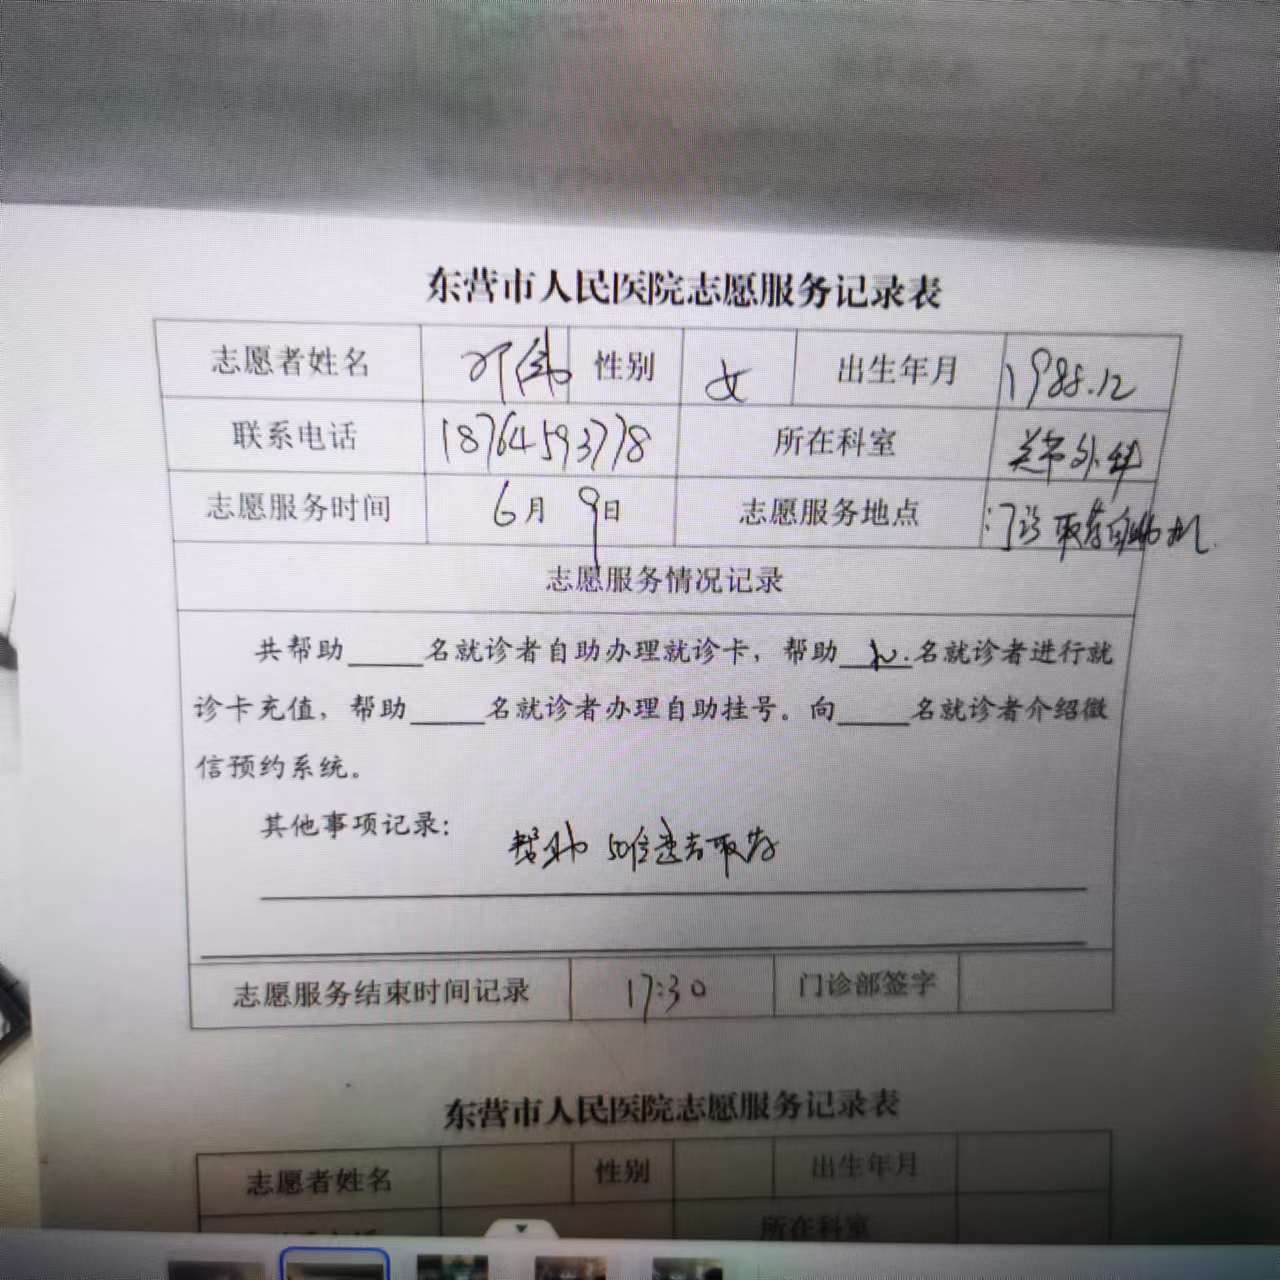 东营市人民医院志愿服务记录表
志愿者姓名 邓伟 性别 女 出生年月 1988.12
联系电话 18764593778 所在科室 关节外科
志愿服务时间 6月 9日 志愿服务地点 :门诊取药自助机.
志愿服务情况记录
共帮助_____名就诊者自助办理就诊卡，帮助_____名就诊者进行就
诊卡充值，帮助_____名就诊者办理自助挂号。向_____名就诊者介绍微
信预约系统。
其他事项记录： 帮助 50位患者取药
志愿服务结束时间记录 17:30 门诊部签字
东营市人民医院志愿服务记录表
志愿者姓名 性别 出生年月
所在科室